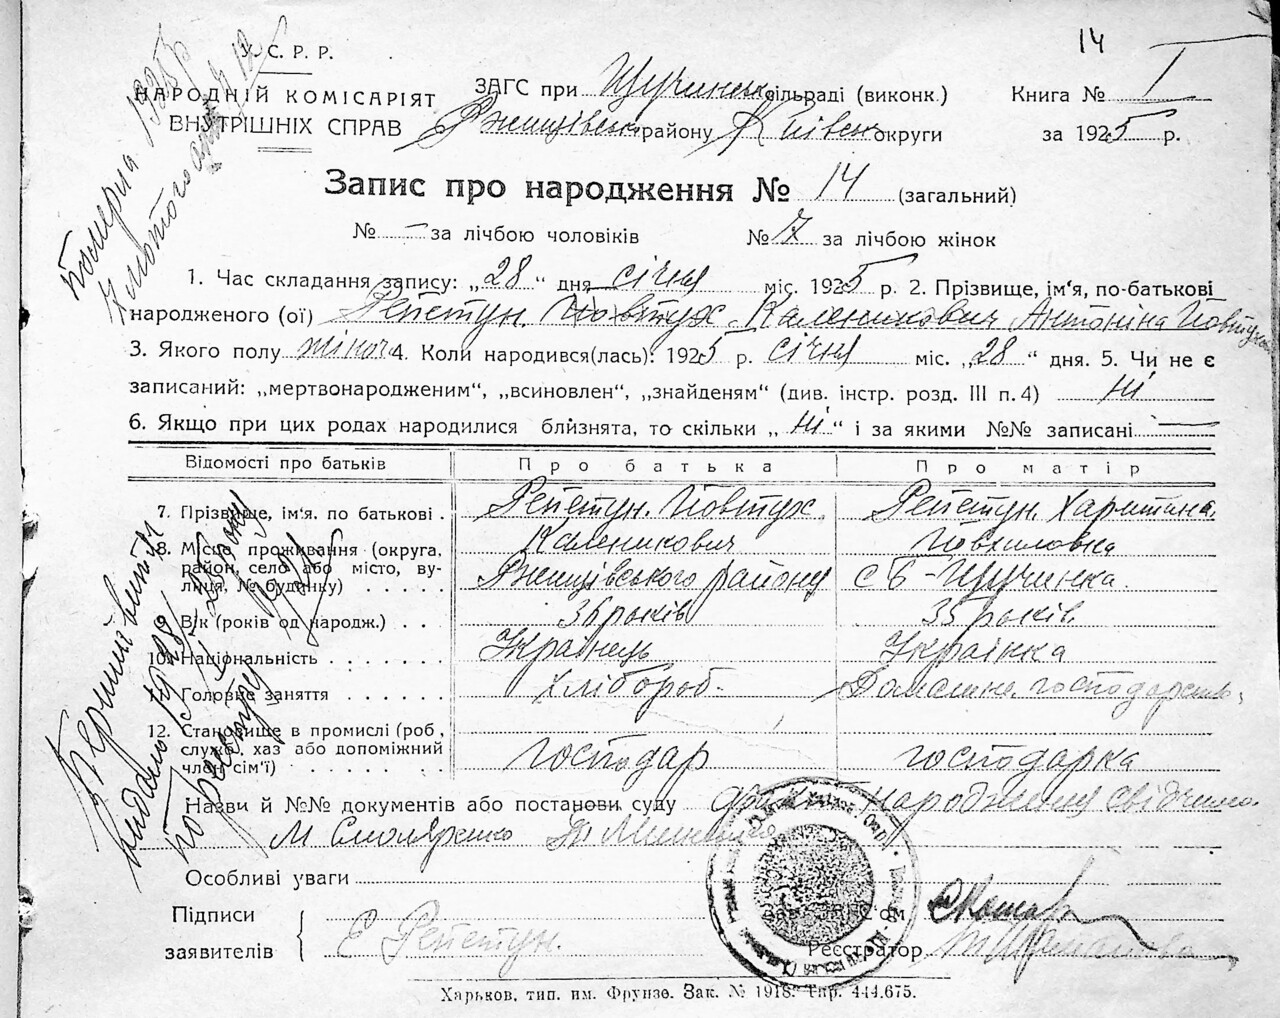 14
У. С. Р. Р.
НАРОДНІЙ КОМІСАРІЯТ
ВНУТРІШНІХ СПРАВ
ЗАГС при Щучинськ сільраді (виконк.)
Ржищівськ району Київськ округи
Книга № I
за 1925 р.
Запис про народження № 14 (загальний)
№ – за лічбою чоловіків № 7 за лічбою жінок
1. Час складання запису: „28“ дня січня міс. 1925 р. 2. Прізвище, ім‘я, по-батькові
народженого (ої) Репетун Йовтух Каленикович Антоніна Йовтух
3. Якого полу жіноч 4. Коли народився(лась): 1925 р. січня міс. „28“ дня. 5. Чи не є
записаний: „мертвонародженим“, „всиновлен“, „знайденям“ (див. інстр. розд. III п. 4) ні
6. Якщо при цих родах народилися близнята, то скільки „ні“ і за якими №№ записані —
Відомості про батьків Про батька Про матір
7. Прізвище, ім‘я. по батькові . Репетун Йовтух Каленикович Репетун Харитина
8. Місце проживання (округа, район, село або місто, вулиця, № будинку) Ржищівського району с Б-Щучинка
9. Вік (років од народж.) . . . 36 років 35 років
10. Національність . . . . . . . Українець Українка
11. Головне заняття . . . . . . Хлібороб Домашнє господарство
12. Становище в промислі (роб, служб, хаз або допоміжний член сім‘ї) . . . . . . . господар господарка
Назви й №№ документів або постанови суду факт народження свідчимо
М Смоляренко
Особливі уваги
Підписи
заявителів Е Репетун.
Зав. ЗАГС‘ом
Реєстратор
Харьков, тип. им. Фрунзе. Зак. № 1918. Тир. 444.675.
Померла 1925 р
7 лютого